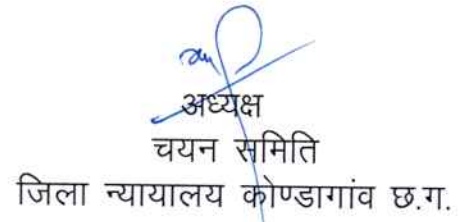 अध्यक्ष
चयन समिति
जिला न्यायालय कोण्डागांव छ.ग.